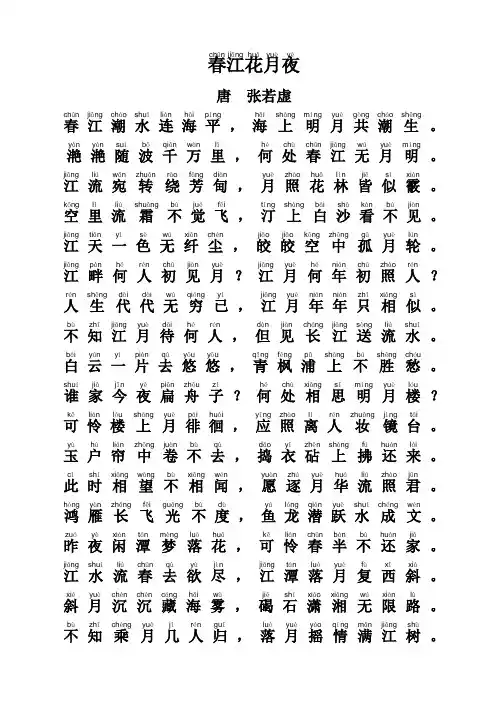 chūn jiāng huā yuè yè
春江花月夜
唐 张若虚
chūn jiāng cháo shuǐ lián hǎi píng hǎi shàng míng yuè gòng cháo shēng
春江潮水连海平，海上明月共潮生。
yàn yàn suí bō qiān wàn lǐ hé chù chūn jiāng wú yuè míng
滟滟随波千万里，何处春江无月明。
jiāng liú wǎn zhuǎn rào fāng diàn yuè zhào huā lín jiē sì xiàn
江流宛转绕芳甸，月照花林皆似霰。
kōng lǐ liú shuāng bù jué fēi tīng shàng bái shā kàn bú jiàn
空里流霜不觉飞，汀上白沙看不见。
jiāng tiān yī sè wú xiān chén jiǎo jiǎo kōng zhōng gū yuè lún
江天一色无纤尘，皎皎空中孤月轮。
jiāng pàn hé rén chū jiàn yuè jiāng yuè hé nián chū zhào rén
江畔何人初见月？江月何年初照人？
rén shēng dài dài wú qióng yǐ jiāng yuè nián nián zhǐ xiāng sì
人生代代无穷已，江月年年只相似。
bù zhī jiāng yuè dài hé rén dàn jiàn cháng jiāng sòng liú shuǐ
不知江月待何人，但见长江送流水。
bái yún yī piàn qù yōu yōu qīng fēng pǔ shàng bú shèng chóu
白云一片去悠悠，青枫浦上不胜愁。
shuí jiā jīn yè piān zhōu zǐ hé chù xiāng sī míng yuè lóu
谁家今夜扁舟子？何处相思明月楼？
kě lián lóu shàng yuè pái huái yīng zhào lí rén zhuāng jìng tái
可怜楼上月徘徊，应照离人妆镜台。
yù hù lián zhōng juǎn bú qù dǎo yī zhēn shàng fú huán lái
玉户帘中卷不去，捣衣砧上拂还来。
cǐ shí xiāng wàng bù xiāng wén yuàn zhú yuè huá liú zhào jūn
此时相望不相闻，愿逐月华流照君。
hóng yàn cháng fēi guāng bú dù yú lóng qián yuè shuǐ chéng wén
鸿雁长飞光不度，鱼龙潜跃水成文。
zuó yè xián tán mèng luò huā kě lián chūn bàn bù huán jiā
昨夜闲潭梦落花，可怜春半不还家。
jiāng shuǐ liú chūn qù yù jìn jiāng tán luò yuè fù xī xié
江水流春去欲尽，江潭落月复西斜。
xié yuè chén chén cáng hǎi wù jié shí xiāo xiāng wú xiàn lù
斜月沉沉藏海雾，碣石潇湘无限路。
bù zhī chéng yuè jǐ rén guī luò yuè yáo qíng mǎn jiāng shù
不知乘月几人归，落月摇情满江树。